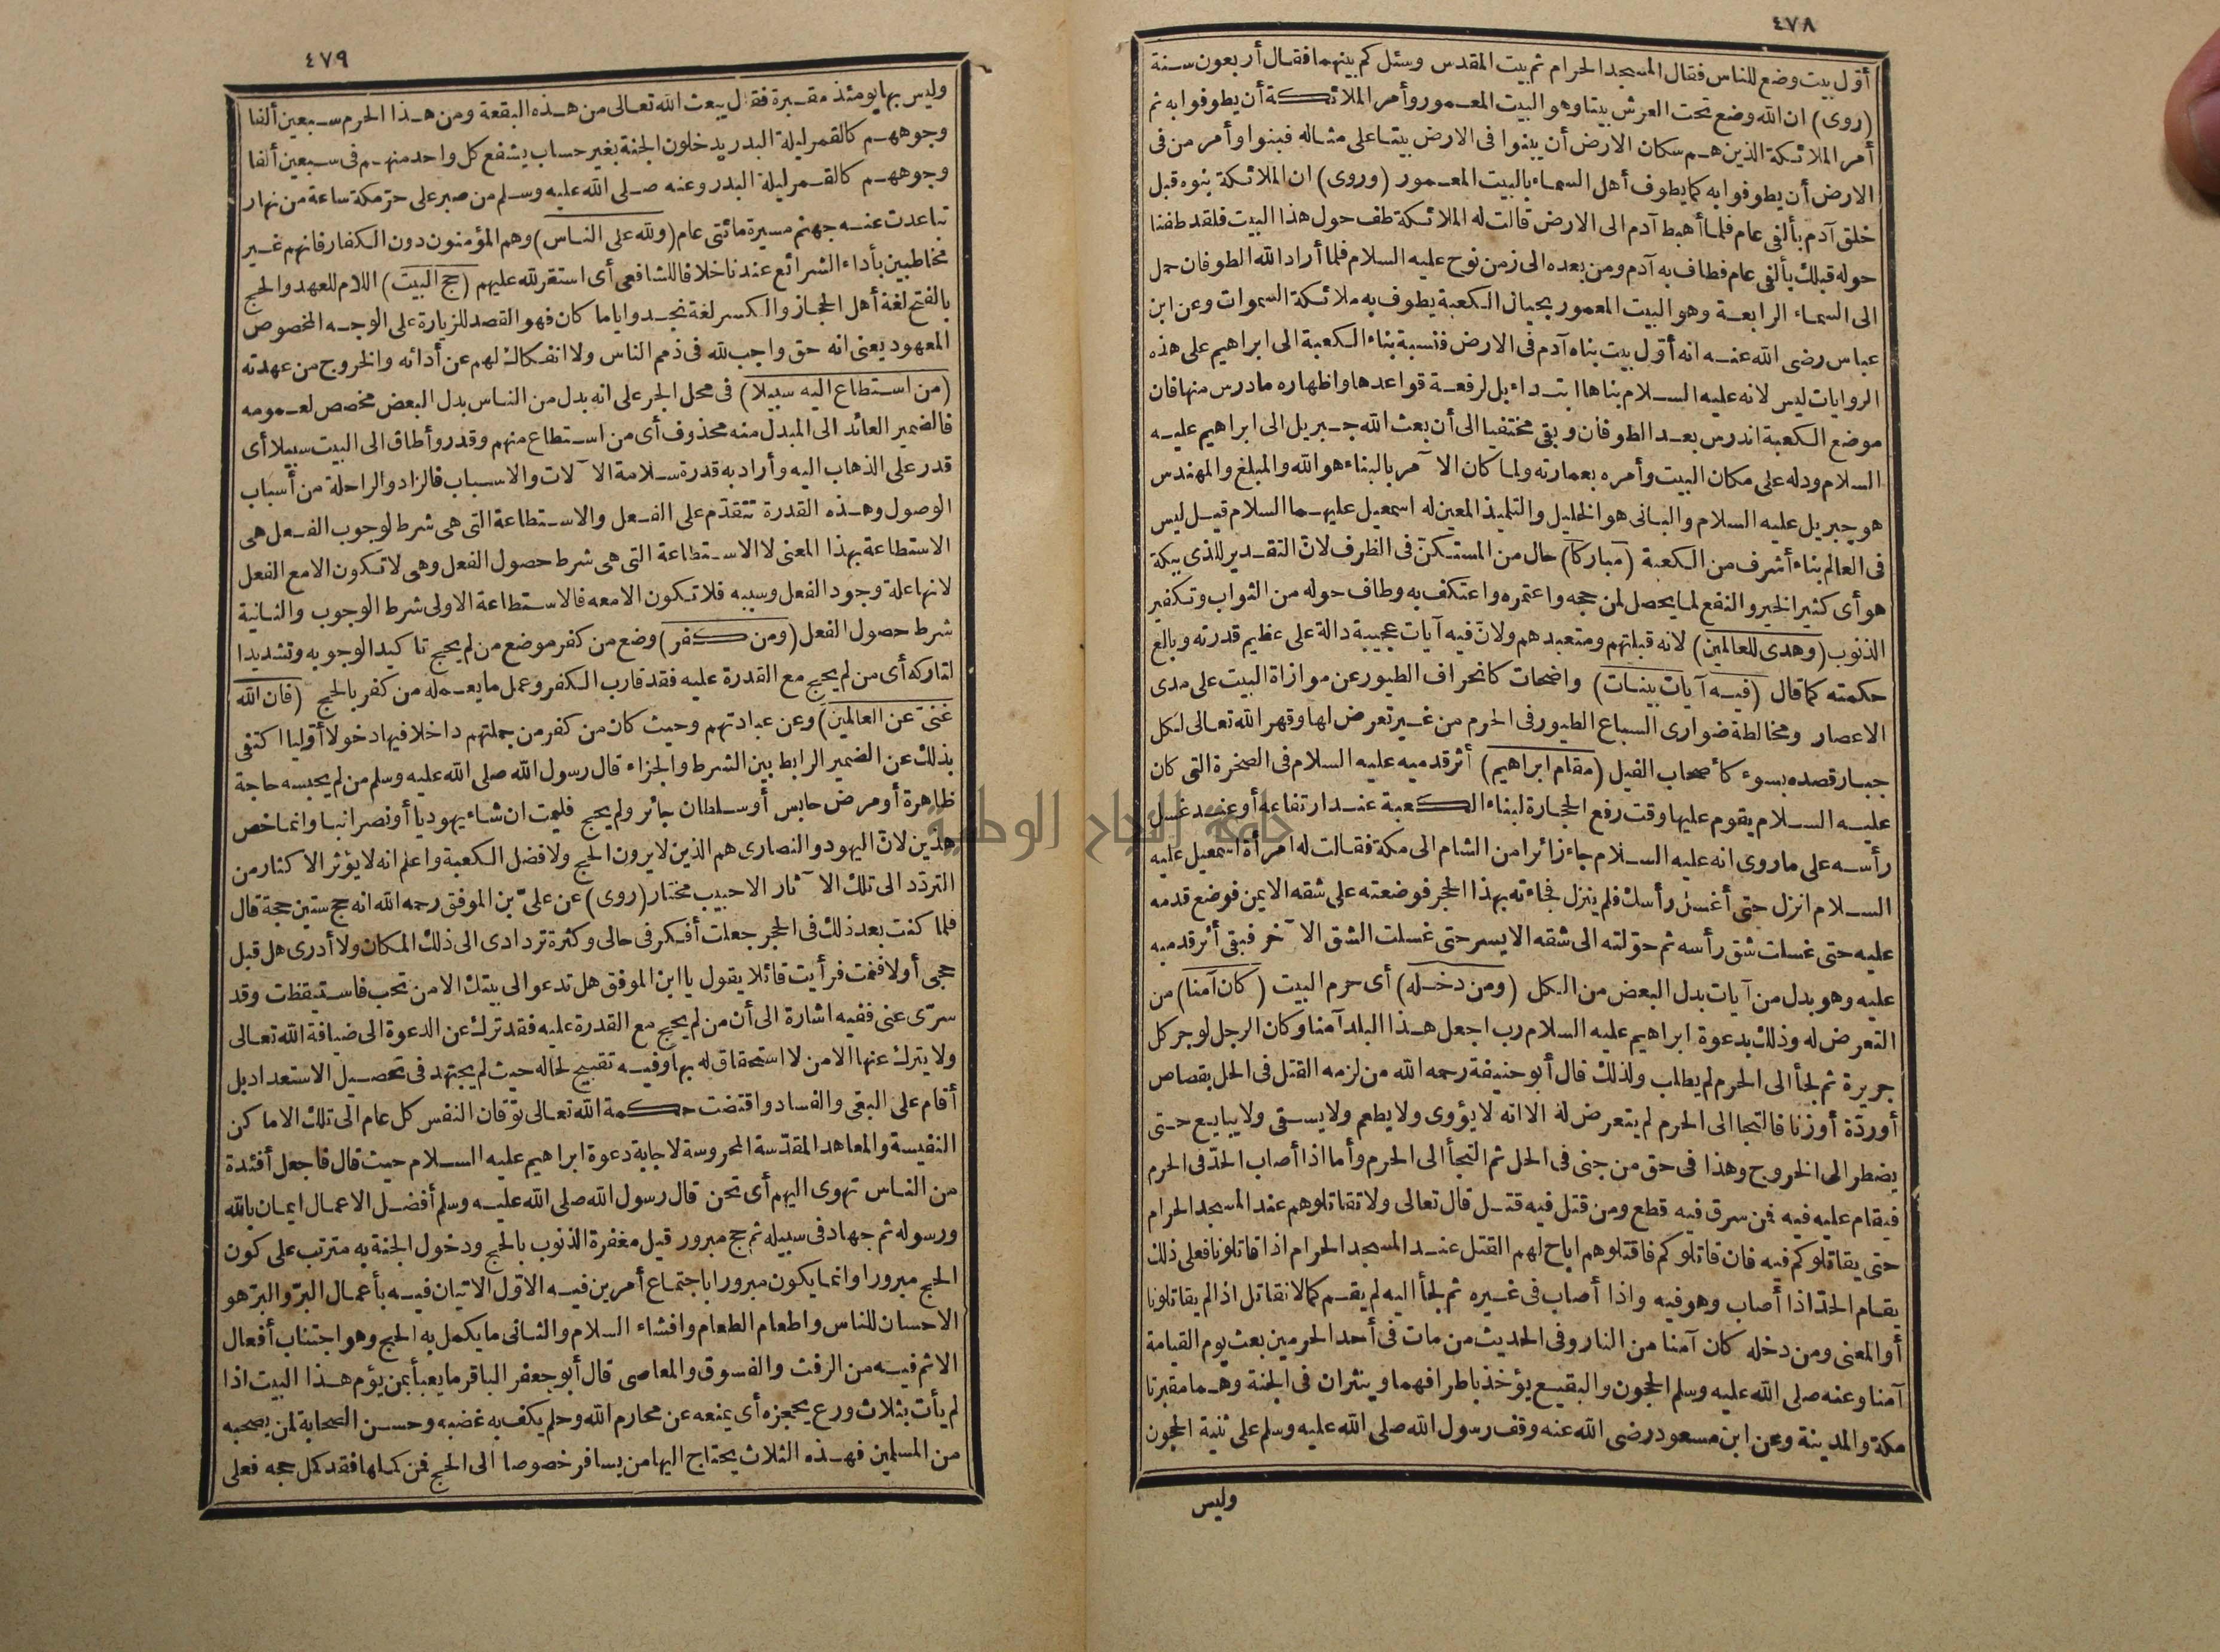 ٤٧٨
أوّل بيت وضع للناس فقال المسجد الحرام ثم بيت المقدس وسئل كم بينهما فقال أربعون سنة
(روى) ان الله وضع تحت العرش بيتا وهو البيت المعمور وأمر الملائكة أن يطوفوا به ثم
أمر الملائكة الذين هم سكان الارض أن يبنوا فى الارض بيتا على مثاله فبنوا وأمر من فى
الارض أن يطوفوا به كما يطوف أهل السماء بالبيت المعمور (وروى) ان الملائكة بنوه قبل
خلق آدم بألفى عام فلما أهبط آدم الى الارض قالت له الملائكة طف حول هذا البيت فلقد طفنا
حوله قبلك بألفى عام فطاف به آدم ومن بعده الى زمن نوح عليه السلام فلما أراد الله الطوفان حمل
الى السماء الرابعة وهو البيت المعمور بحيال الكعبة يطوف به ملائكة السموات وعن ابن
عباس رضى الله عنه انه أوّل بيت بناه آدم فى الارض فنسبة بناء الكعبة الى ابراهيم على هذه
الروايات ليس لانه عليه السلام بناها ابتداء بل لرفعة قواعدها واظهاره ما درس منها فان
موضع الكعبة اندرس بعد الطوفان وبقى مختفيا الى أن بعث الله جبريل الى ابراهيم عليه
السلام ودله على مكان البيت وأمره بعمارته ولما كان الآمر بالبناء هو الله والمبلغ والمهندس
هو جبريل عليه السلام والبانى هو الخليل والتلميذ المعين له اسمعيل عليهما السلام قيل ليس
فى العالم بناء أشرف من الكعبة (مباركا) حال من المستكنّ فى الظرف لانّ التقدير للذى ببكة
هو أى كثير الخير والنفع لما يحصل لمن حجه واعتمره واعتكف به وطاف حوله من الثواب وتكفير
الذنوب (وهدى للعالمين) لانه قبلتهم ومتعبدهم ولانّ فيه آيات عجيبة دالة على عظيم قدرته وبالغ
حكمته كما قال (فيه آيات بينات) واضحات كانحراف الطيور عن موازاة البيت على مدى
الاعصار ومخالطة ضوارى السباع الطيور فى الحرم من غير تعرض لها وقهر الله تعالى لكل
جبار قصده بسوء كأصحاب الفيل (مقام ابراهيم) أثر قدميه عليه السلام فى الصخرة التى كان
عليه السلام يقوم عليها وقت رفع الحجارة لبناء الكعبة عند ارتفاعه أو عند غسل
رأسه على ما روى انه عليه السلام جاء زائرا من الشام الى مكة فقالت له امرأة اسمعيل عليه
السلام انزل حتى أغسل رأسك فلم ينزل فجاءته بهذا الحجر فوضعته على شقه الايمن فوضع قدمه
عليه حتى غسلت شق رأسه ثم حوّلته الى شقه الايسر حتى غسلت الشق الآخر فبقى أثر قدميه
عليه وهو بدل من آيات بدل البعض من الكل (ومن دخله) أى حرم البيت (كان آمنا) من
التعرض له وذلك بدعوة ابراهيم عليه السلام رب اجعل هذا البلد آمنا وكان الرجل لو جر كل
جريرة ثم لجأ الى الحرم لم يطلب ولذلك قال أبو حنيفة رحمه الله من لزمه القتل فى الحل بقصاص
أو ردّة أو زنا فالتجا الى الحرم لم يتعرض له الا انه لا يؤوى ولا يطعم ولا يسقى ولا يبايع حتى
يضطر الى الخروج وهذا فى حق من جنى فى الحل ثم التجأ الى الحرم وأما اذا أصاب الحدّ فى الحرم
فيقام عليه فيه فمن سرق فيه قطع ومن قتل فيه قتل قال تعالى ولا تقاتلوهم عند المسجد الحرام
حتى يقاتلوكم فيه فان قاتلوكم فاقتلوهم اباح لهم القتل عند المسجد الحرام اذا قاتلونا فعلى ذلك
يقام الحدّ اذا أصاب وهو فيه واذا أصاب فى غيره ثم لجأ اليه لم يقم كما لا نقاتل اذا لم يقاتلونا
أو المعنى ومن دخله كان آمنا من النار وفى الحديث من مات فى أحد الحرمين بعث يوم القيامة
آمنا وعنه صلى الله عليه وسلم الحجون والبقيع يؤخذ باطرافهما وينثران فى الجنة وهما مقبرتا
مكة والمدينة وعن ابن مسعود رضى الله عنه وقف رسول الله صلى الله عليه وسلم على ثنية الحجون
وليس
٤٧٩
وليس بها يومئذ مقبرة فقال يبعث الله تعالى من هذه البقعة ومن هذا الحرم سبعين ألفا
وجوههم كالقمر ليلة البدر يدخلون الجنة بغير حساب يشفع كل واحد منهم فى سبعين ألفا
وجوههم كالقمر ليلة البدر وعنه صلى الله عليه وسلم من صبر على حرّ مكة ساعة من نهار
تباعدت عنه جهنم مسيرة مائتى عام (ولله على الناس) وهم المؤمنون دون الكفار فانهم غير
مخاطبين بأداء الشرائع عندنا خلافا للشافعى أى استقر لله عليهم (حج البيت) اللام للعهد والحج
بالفتح لغة أهل الحجاز والكسر لغة نجد واياما كان فهو القصد للزيارة على الوجه المخصوص
المعهود يعنى انه حق واجب لله فى ذمم الناس ولا انفكاك لهم عن أدائه والخروج من عهدته
(من استطاع اليه سبيلا) فى محل الجر على انه بدل من الناس بدل البعض مخصص لعمومه
فالضمير العائد الى المبدل منه محذوف أى من استطاع منهم وقدر وأطاق الى البيت سبيلا أى
قدر على الذهاب اليه وأراد به قدرة سلامة الآلات والاسباب فالزاد والراحلة من أسباب
الوصول وهذه القدرة تتقدّم على الفعل والاستطاعة التى هى شرط لوجوب الفعل هى
الاستطاعة بهذا المعنى لا الاستطاعة التى هى شرط حصول الفعل وهى لا تكون الا مع الفعل
لانها علة وجود الفعل وسببه فلا تكون الا معه فالاستطاعة الاولى شرط الوجوب والثانية
شرط حصول الفعل (ومن كفر) وضع من كفر موضع من لم يحج تاكيدا لوجوبه وتشديدا
لتاركه أى من لم يحج مع القدرة عليه فقد قارب الكفر وعمل ما يعمله من كفر بالحج (فان الله
غنىّ عن العالمين) وعن عبادتهم وحيث كان من كفر من جملتهم داخلا فيها دخولا أوّليا اكتفى
بذلك عن الضمير الرابط بين الشرط والجزاء قال رسول الله صلى الله عليه وسلم من لم يحبسه حاجة
ظاهرة أو مرض حابس أو سلطان جائر ولم يحج فليمت ان شاء يهوديا أو نصرانيا وانما خص
هذين لانّ اليهود والنصارى هم الذين لا يرون الحج ولا فضل الكعبة واعلم انه لا يؤثر الاكثار من
التردّد الى تلك الآثار الا حبيب مختار (روى) عن علىّ بن الموفق رحمه الله انه حج ستين حجة قال
فلما كنت بعد ذلك فى الحجر جعلت أفكر فى حالى وكثرة تردادى الى ذلك المكان ولا أدرى هل قبل
حجى أو لا فنمت فرأيت قائلا يقول يا ابن الموفق هل تدعو الى بيتك الا من تحب فاستيقظت وقد
سرّى عنى ففيه اشارة الى أن من لم يحج مع القدرة عليه فقد ترك عن الدعوة الى ضيافة الله تعالى
ولا يترك عنها الا من لا استحقاق له بها وفيه تقبيح لحاله حيث لم يجتهد فى تحصيل الاستعداد بل
أقام على البغى والفساد واقتضت حكمة الله تعالى توقان النفس كل عام الى تلك الاماكن
النفيسة والمعاهد المقدّسة المحروسة لاجابة دعوة ابراهيم عليه السلام حيث قال فاجعل أفئدة
من الناس تهوى اليهم أى تحن قال رسول الله صلى الله عليه وسلم أفضل الاعمال ايمان بالله
ورسوله ثم جهاد فى سبيله ثم حج مبرور قيل مغفرة الذنوب بالحج ودخول الجنة به مترتب على كون
الحج مبرورا وانما يكون مبرورا باجتماع أمرين فيه الاوّل الاتيان فيه بأعمال البرّ والبرّ هو
الاحسان للناس واطعام الطعام وافشاء السلام والثانى ما يكمل به الحج وهو اجتناب أفعال
الاثم فيه من الرفث والفسوق والمعاصى قال أبو جعفر الباقر ما يعبأ بمن يؤم هذا البيت اذا
لم يأت بثلاث ورع يحجزه أى يمنعه عن محارم الله وحلم يكف به غضبه وحسن الصحابة لمن يصحبه
من المسلمين فهذه الثلاث يحتاج اليها من يسافر خصوصا الى الحج فمن كملها فقد كمل حجه فعلى
جامعة النجاح الوطنية